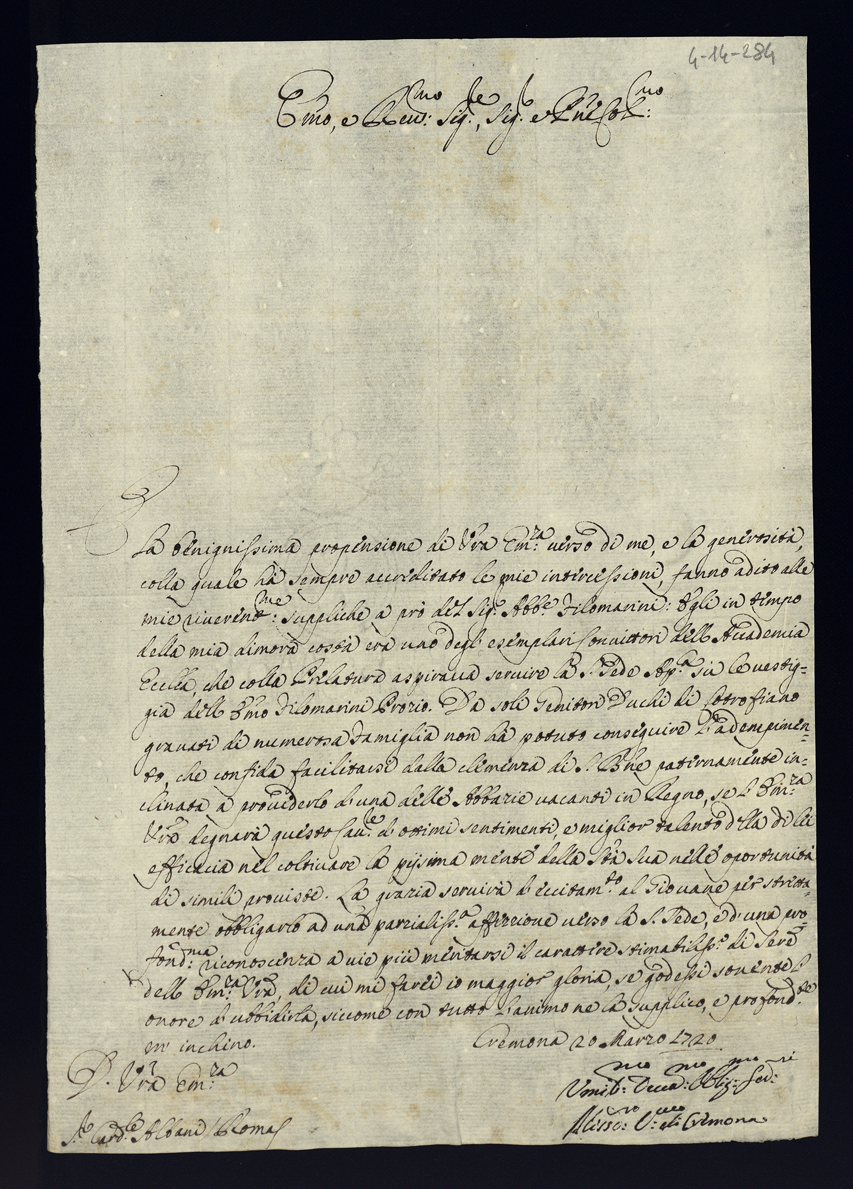 4-14-284
Emo, e Reu:mo Sig:re, Sig:r e Pne Col:mo
La benignissima propensione di Vra Em:za uerso di me, e la generosità,
colla quale hà sempre accreditato le mie intercessioni, fanno adito alle
mie riuerent:me suppliche a prò del Sig:r Abb:e Filomarini: Egli in tempo
della mia dimora costà era uno degli esemplari Conuittori dell'Accademia
Eccl:ca, che colla Prelatura aspiraua seruire la S. Sede Ap:ca sù le uestig=
gia dell'Emo Filomarini Prozio. Da soli Genitori Duchi di Cotrofiano
grauati di numerosa Famiglia non hà potuto conseguire l'adempimen=
to, che confida facilitarsi dalla clemenza di S. Bne paternamente in=
clinata a prouederlo di una delle Abbazie uacanti in Regno, se l'Em:za
Vra degnarà questo Cau:re d'ottimi sentimenti, e miglior talento della di lei
efficacia nel coltiuare la pijssima mente della Stà Sua nelle oportunità
di simili prouiste. La grazia seruirà d'eccitam:to al Giouane per stretta=
mente obbligarlo ad una parzialiss:a affezzione uerso la S. Sede, e d'una pro=
fond:ma riconoscenza a uie più meritarsi il carattere stimatiliss:o di Sere
dell'Em:za Vra, di cui mi farei io maggior gloria, se godessi souente l'
onore d'ubbidirla, siccome con tutto l'animo ne la supplico, e profond:te
m'inchino.
Cremona 20 Marzo 1720
D. Vra Em:za
Umil:mo Deud:mo Obblig:mo Sed:
S:r Card:le Albani / Roma /
Aless:ro V:uo di Cremona